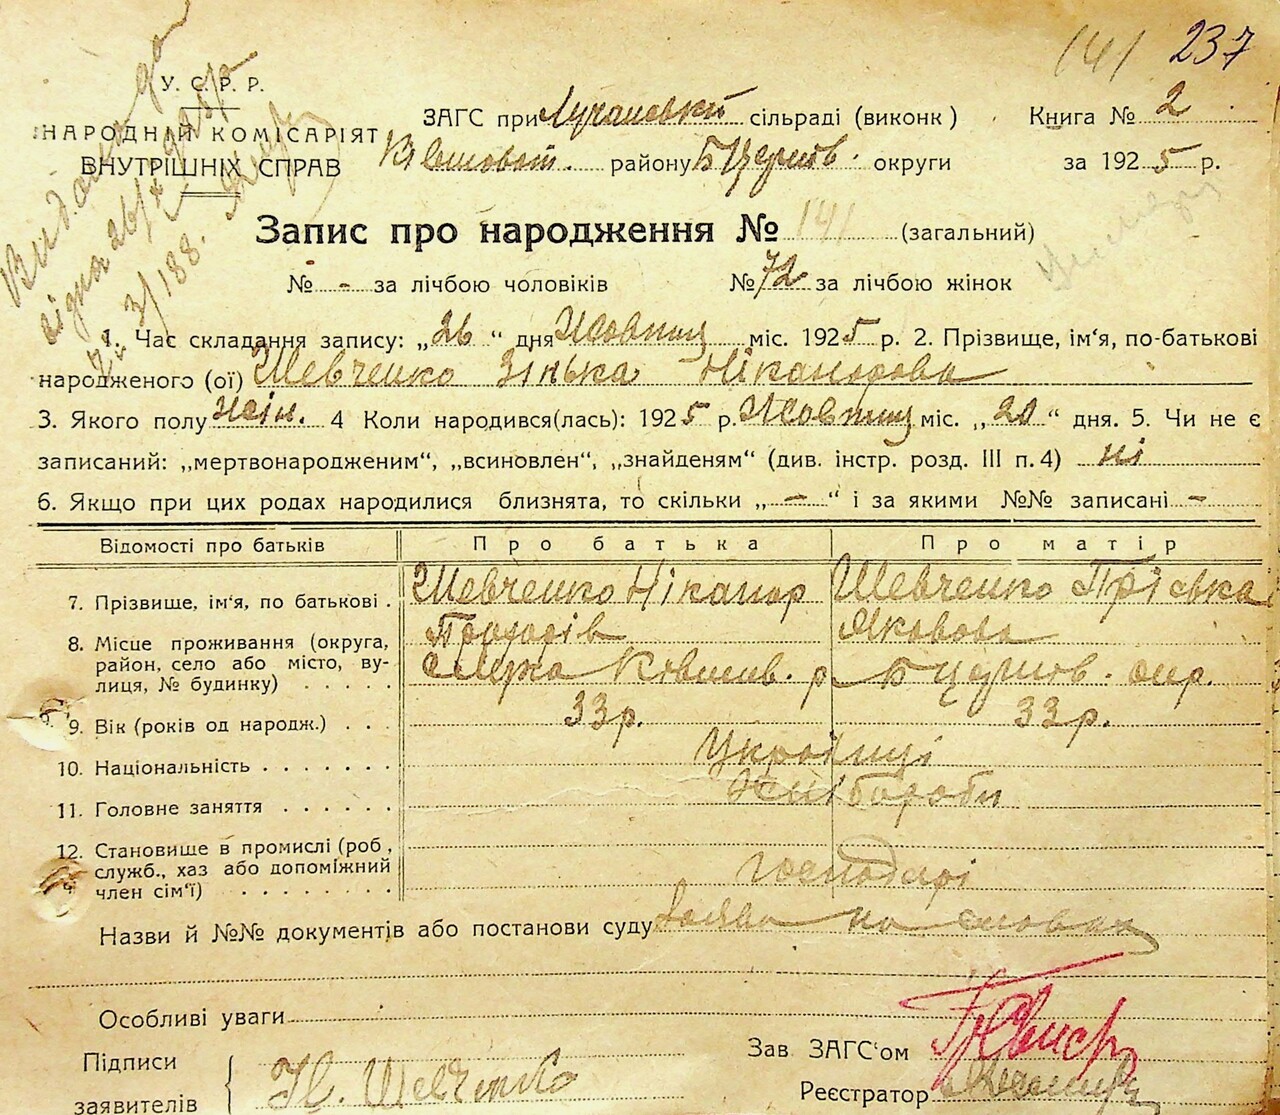 141 237
У. С. Р. Р.
НАРОДНІЙ КОМІСАРІЯТ
ВНУТРІШНІХ СПРАВ
ЗАГС при сільраді (виконк) Книга № 2
району Б Церків. округи за 1925 р.
Запис про народження № 141 (загальний)
№ - за лічбою чоловіків № 72 за лічбою жінок
1. Час складання запису: „26“ дня Жовтня міс. 1925 р. 2. Прізвище, ім‘я, по-батькові
народженого (ої) Шевченко Зінька Ніканорова
3. Якого полу Жін. 4 Коли народився(лась): 1925 р. Жовтня міс. „20“ дня. 5. Чи не є
записаний: „мертвонародженим“, „всиновлен“, „знайденям“ (див. інстр. розд. III п. 4) ні
6. Якщо при цих родах народилися близнята, то скільки „-“ і за якими №№ записані -
Відомості про батьків Про батька Про матір
7. Прізвище, ім‘я, по батькові. Шевченко Ніканор Шевченко Пріська
Яковова
8. Місце проживання (округа, район, село або місто, вулиця, № будинку) р. Б Церків. окр.
9. Вік (років од народж.) . . . 33 р. 33 р.
10. Національність . . . . . . . Українці
11. Головне заняття . . . . . . Хлібороби
12. Становище в промислі (роб, служб., хаз або допоміжний член сім‘ї) . . . . . . . . Господарі
Назви й №№ документів або постанови суду Заява на словах
Особливі уваги
Підписи
заявителів Н. Шевченко
Зав ЗАГС‘ом
Реєстратор